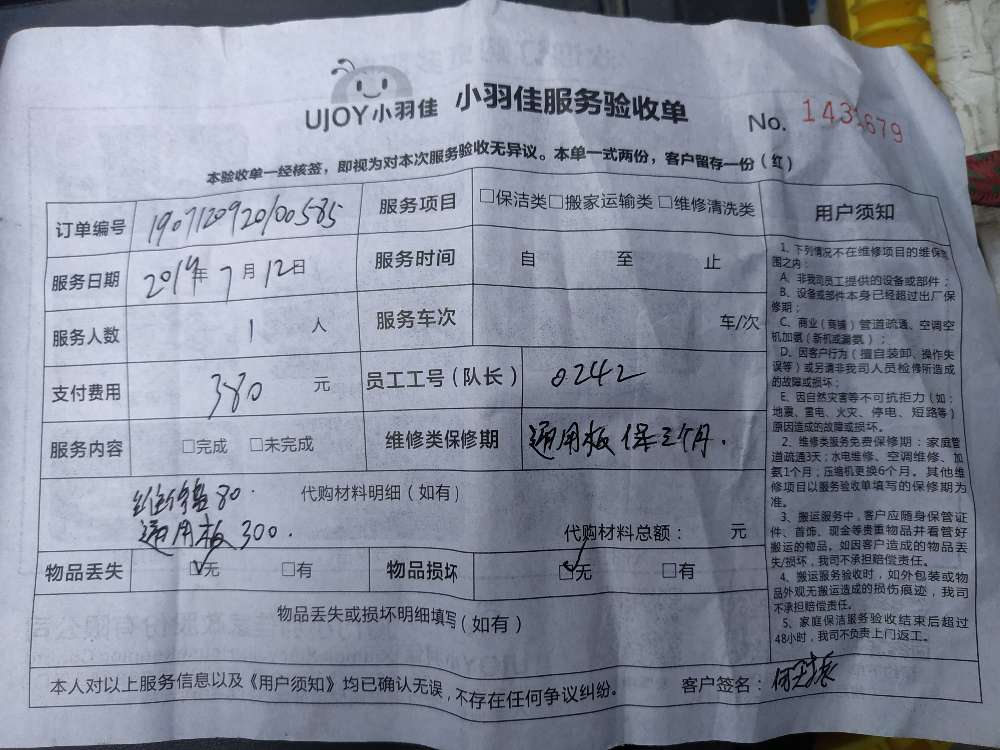 UJOY小羽佳 小羽佳服务验收单
No. 143 679
本验收单一经核签，即视为对本次服务验收无异议。本单一式两份，客户留存一份（红）
订单编号 19071209200585 服务项目 □保洁类□搬家运输类 □维修清洗类
服务日期 2019年 7月 12日 服务时间 自 至 止
服务人数 1 人 服务车次 车/次
支付费用 380 元 员工工号（队长） 0242
服务内容 □完成 □未完成 维修类保修期 通用板 保三个月.
代购材料明细（如有）
80.
通用板 300.
代购材料总额： 元
物品丢失 □无 □有 物品损坏 □无 □有
物品丢失或损坏明细填写（如有）
本人对以上服务信息以及《用户须知》均已确认无误，不存在任何争议纠纷。 客户签名：
用户须知
1、下列情况不在维修项目的维保范
围之内：
A、非我司员工提供的设备或部件；
B、设备或部件本身已经超过出厂保
修期；
C、商业（商铺）管道疏通、空调空
机加氨（新机或漏氨）；
D、因客户行为（擅自装卸、操作失
误等）或另请非我司人员检修所造成
的故障或损坏；
E、因自然灾害等不可抗拒力（如：
地震、雷电、火灾、停电、短路等）
原因造成的故障或损坏。
2、维修类服务免费保修期：家庭管
道疏通3天；水电维修、空调维修、加
氨1个月；压缩机更换6个月。其他维
修项目以服务验收单填写的保修期为
准。
3、搬运服务中，客户应随身保管证
件、首饰、现金等贵重物品并看管好
搬运的物品。如因客户造成的物品丢
失/损坏，我司不承担赔偿责任。
4、搬运服务验收时，如外包装或物
品外观无搬运造成的损伤痕迹，我司
不承担赔偿责任。
5、家庭保洁服务验收结束后超过
48小时，我司不负责上门返工。